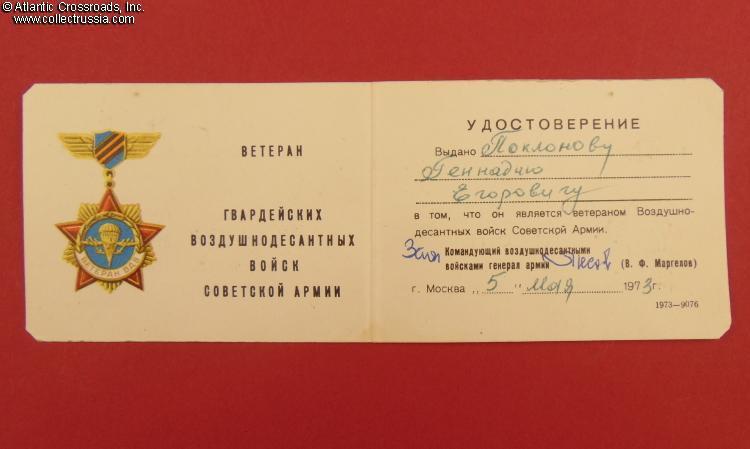 © Atlantic Crossroads, Inc.
www.collectrussia.com
ВЕТЕРАН ВДВ
ВЕТЕРАН
ГВАРДЕЙСКИХ
ВОЗДУШНОДЕСАНТНЫХ
ВОЙСК
СОВЕТСКОЙ АРМИИ
УДОСТОВЕРЕНИЕ
Выдано Поклонову
Геннадию
Егоровичу
в том, что он является ветераном Воздушно-
десантных войск Советской Армии.
Командующий воздушнодесантными
войсками генерал армии (В. Ф. Маргелов)
г. Москва „5" мая 1973г.
1973—9076